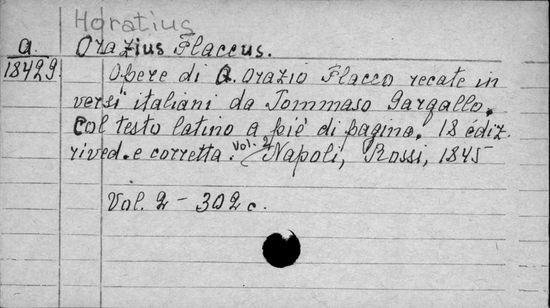 Horatius
a. Orazius Flaccus.
18429.
Opere di Q. Orazio Flacco recate in
versi italiani da Tommaso Gargallo.
Col testo latino a piè di pagina. 18 ediz.
rived. e corretta. Vol. 2 Napoli, Rossi, 1845
Vol. 2 - 302 c.